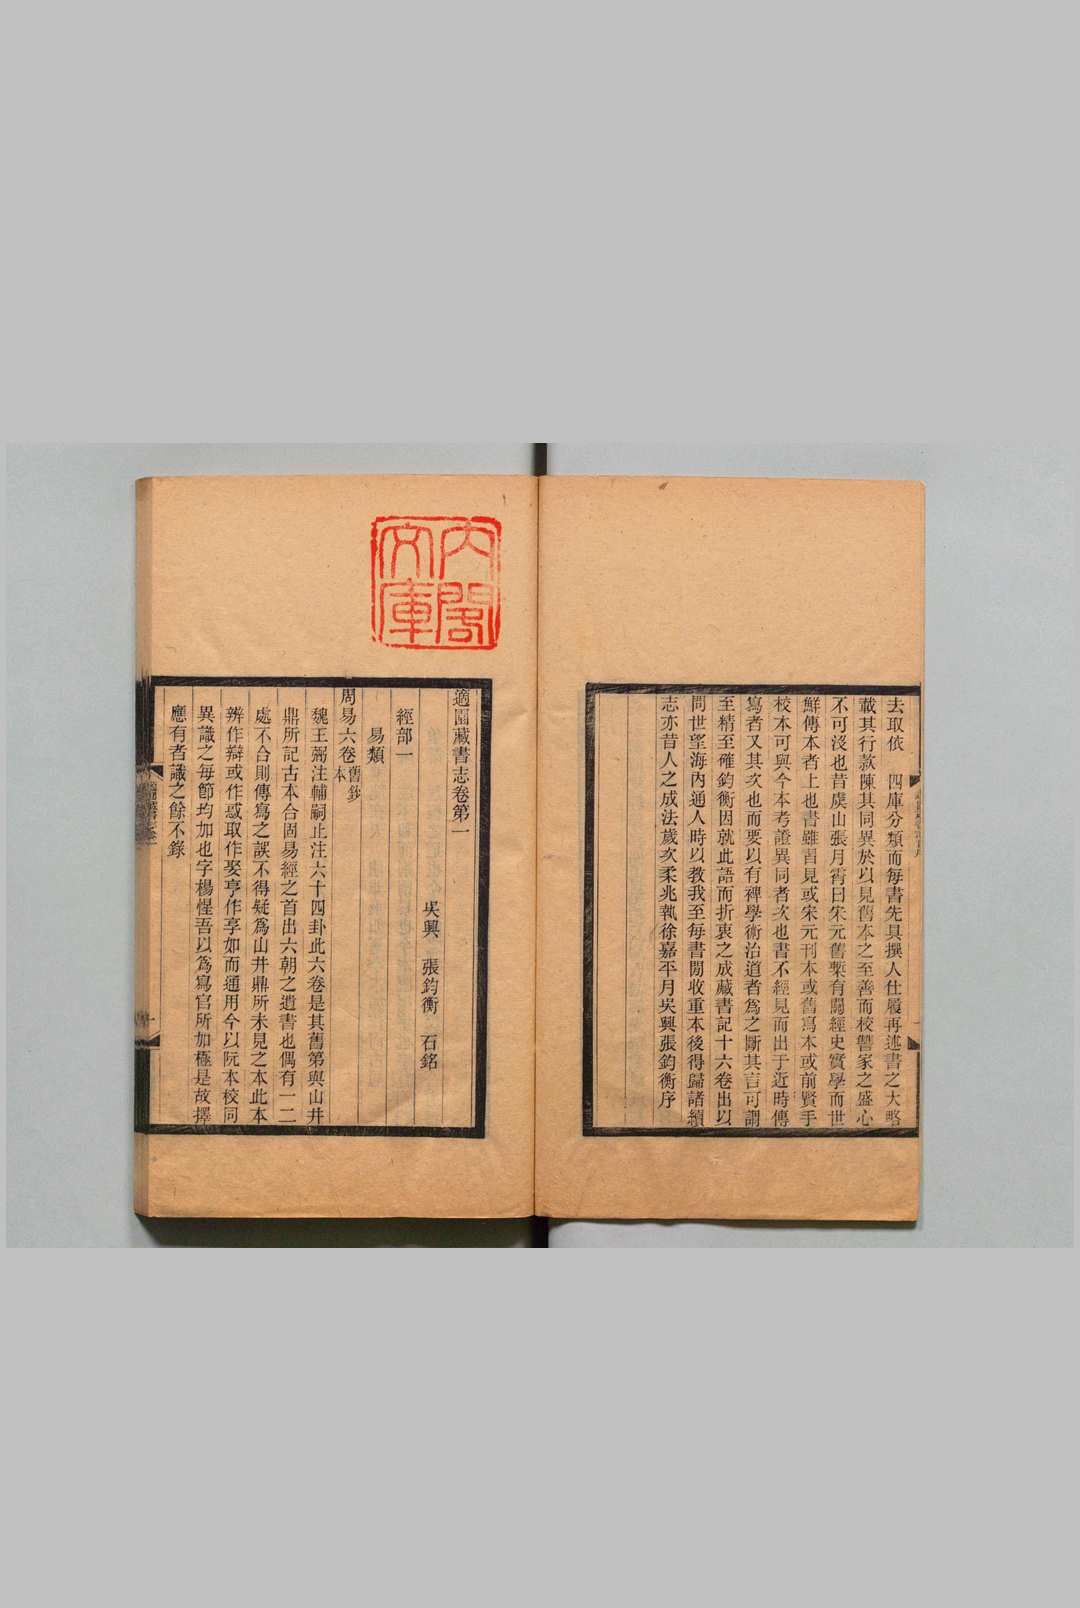 去取依　四庫分類而每書先具撰人仕履再述書之大略
載其行款陳其同異於以見舊本之至善而校讐家之盛心
不可沒也昔虞山張月霄曰宋元舊槧有關經史實學而世
鮮傳本者上也書雖習見或宋元刊本或舊寫本或前賢手
校本可與今本考證異同者次也書不經見而出于近時傳
寫者又其次也而要以有裨學術治道者爲之斷其言可謂
至精至確鈞衡因就此語而折衷之成藏書記十六卷出以
問世望海內通人時以教我至每書閒收重本後得歸諸續
志亦昔人之成法歲次柔兆執徐嘉平月吳興張鈞衡序
內閣
文庫
適園藏書志卷第一
吳興　張鈞衡　石銘
經部一
易類
周易六卷舊鈔本
魏王弼注輔嗣止注六十四卦此六卷是其舊第與山井
鼎所記古本合固易經之首出六朝之遺書也偶有一二
處不合則傳寫之誤不得疑爲山井鼎所未見之本此本
辨作辯或作惑取作娶亨作享如而通用今以阮本校同
異識之每節均加也字楊惺吾以爲寫官所加極是故擇
應有者識之餘不錄